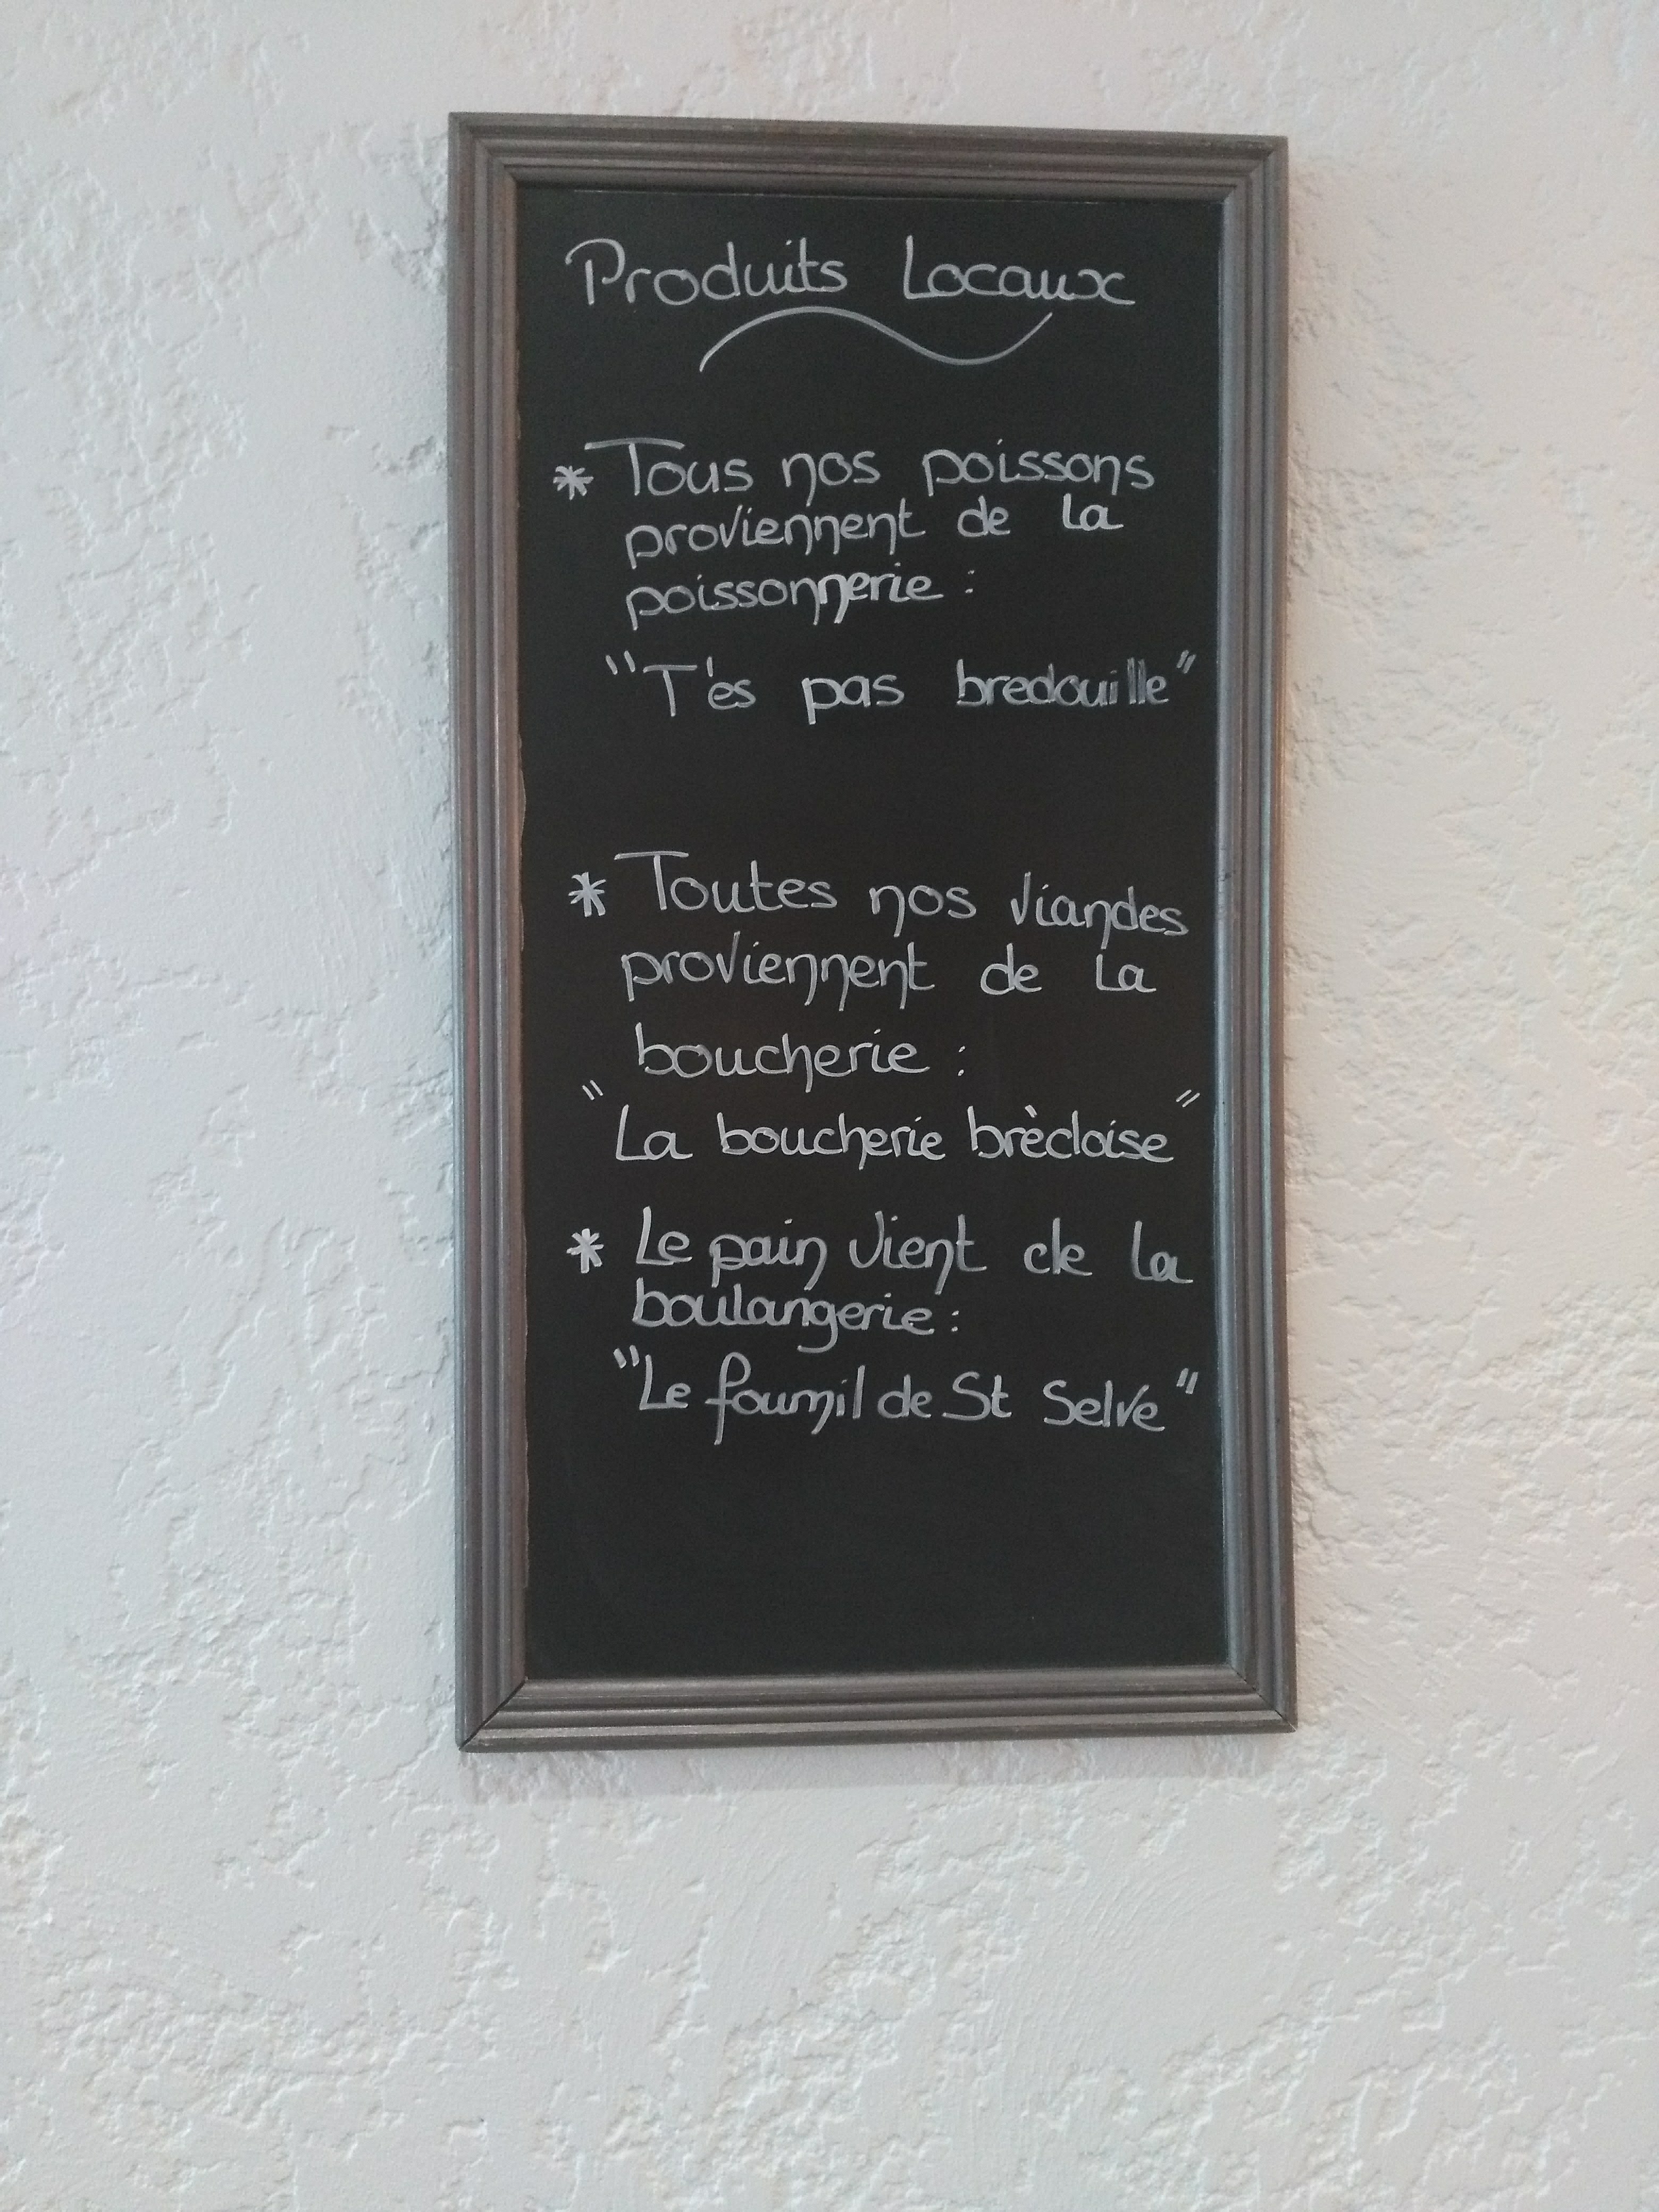 Produits Locaux
* Tous nos poissons
proviennent de la
poissonnerie :
"T'es pas bredouille"
* Toutes nos viandes
proviennent de la
boucherie :
"La boucherie brècloise"
* Le pain vient de la
boulangerie :
"Le fournil de St Selve"